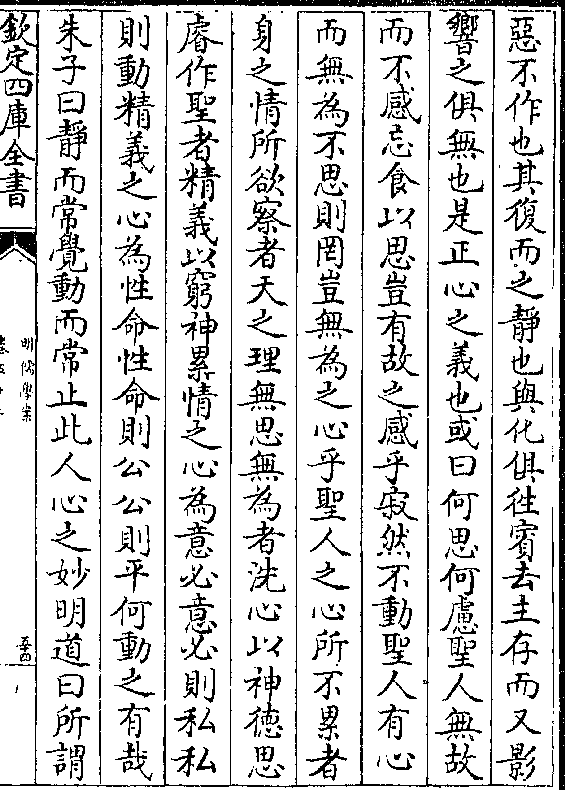 惡不作也其復而之靜也與化俱徃賓去主存而又影
響之俱無也是正心之義也或曰何思何慮聖人無故
而不感忘食以思豈有故之感乎寂然不動聖人有心
而無為不思則罔豈無為之心乎聖人之心所不累者
身之情所欲察者天之理無思無為者洗心以神徳思
睿作聖者精義以窮神累情之心為意必意必則私私
則動精義之心為性命性命則公公則平何動之有哉
朱子曰靜而常覺動而常止此人心之妙明道曰所謂
欽定四庫全書
明儒學案
五十四